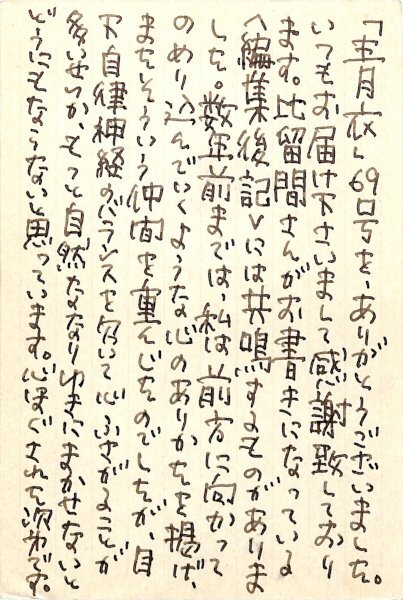 「青月夜」69号を、ありがとうございました。
いつもお届け下さいまして感謝致しており
ます。比留間さんがお書きになっている
〈編集後記〉には共鳴するものがありま
した。数年前までは、私は前方に向かって
のめり込んでいくような心のありかたを掲げ、
またそういう仲間を重んじたのでしたが、目
下自律神経のバランスを欠いて心ふさがることが
多いせいか、もっと自然ななりゆきにまかせないと
どうにもならないと思っています。心ほぐされた次第です。